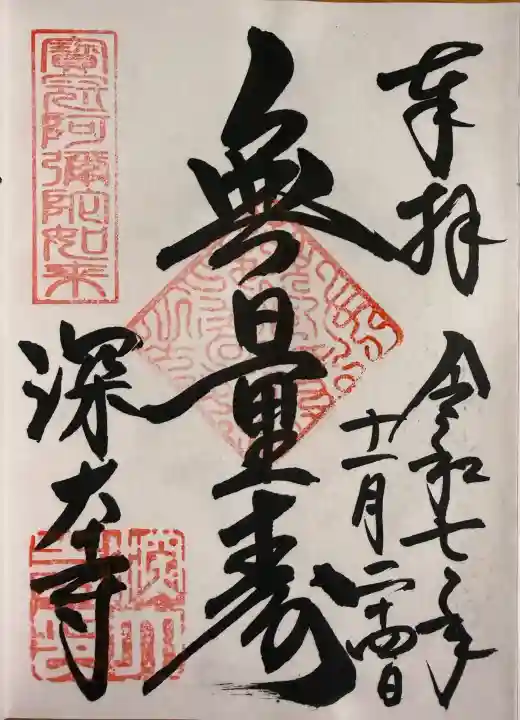 奉拝
令和七年
十一月二十四日
無量壽
寶冠阿彌陀如来
深大寺